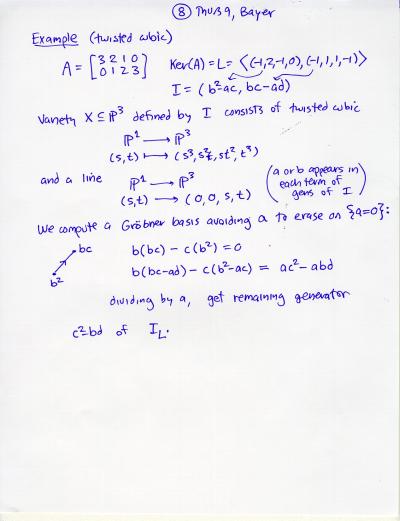 ⑧ Thu 8 9, Bayer
Example (twisted cubic)
A = [3 2 1 0
0 1 2 3] Ker(A) = L = ⟨(-1,2,-1,0), (-1,1,1,-1)⟩
I = (b²-ac, bc-ad)
Variety X ⊆ ℙ³ defined by I consists of twisted cubic
ℙ¹ → ℙ³
(s,t) ↦ (s³, s²t, st², t³)
and a line ℙ¹ → ℙ³
(s,t) → (0,0,s,t)
(a or b appears in
each term of
gens of I)
We compute a Gröbner basis avoiding a to erase on {a=0}:
bc
b²
b(bc) - c(b²) = 0
b(bc-ad) - c(b²-ac) = ac² - abd
dividing by a, get remaining generator
c²-bd of I_L.